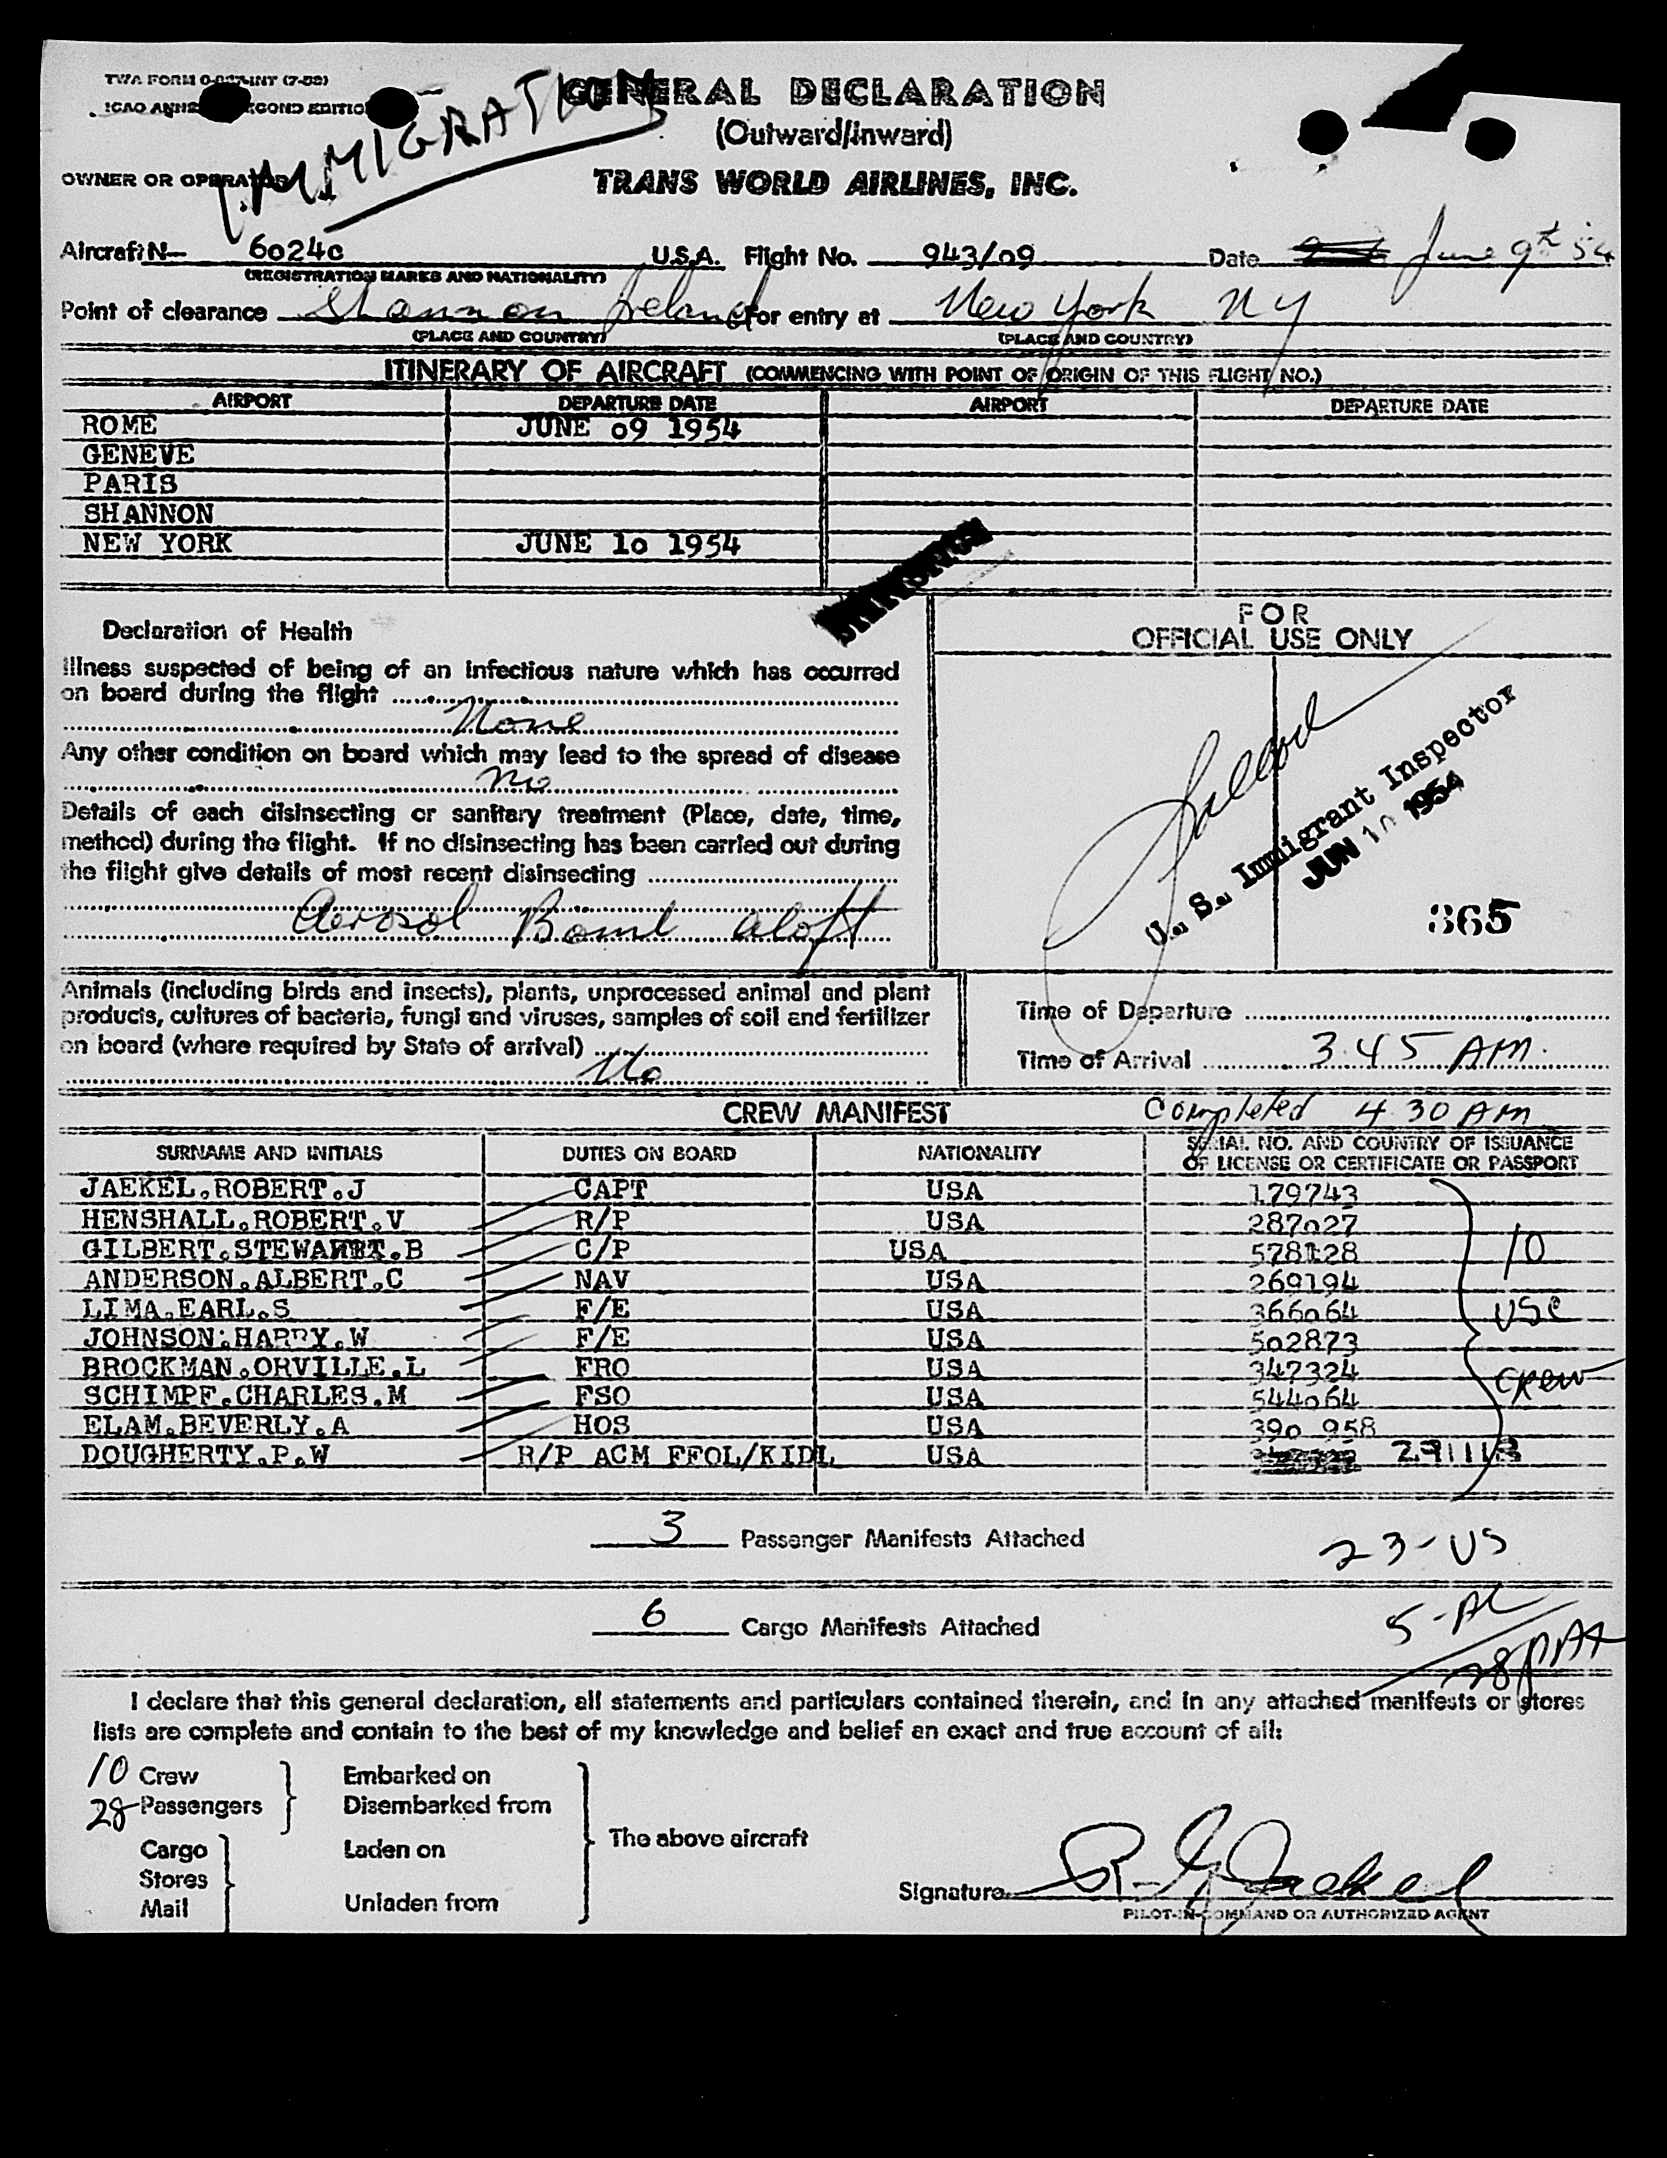 TWA FORM O- INT (7-52)
GENERAL DECLARATION
ICAO SECOND EDITION
IMMIGRATION
(Outward/Inward)
OWNER OR OPERATOR
TRANS WORLD AIRLINES, INC.
Aircraft N— 6024c U.S.A. Flight No. 943/09 Date June 9th 54
(REGISTRATION MARKS AND NATIONALITY)
Point of clearance Shannon Ireland For entry at New York NY
(PLACE AND COUNTRY) (PLACE AND COUNTRY)
ITINERARY OF AIRCRAFT (COMMENCING WITH POINT OF ORIGIN OF THIS FLIGHT NO.)
AIRPORT DEPARTURE DATE AIRPORT DEPARTURE DATE
ROME JUNE 09 1954
GENEVE
PARIS
SHANNON
NEW YORK JUNE 10 1954
Declaration of Health
Illness suspected of being of an infectious nature which has occurred
on board during the flight
None
Any other condition on board which may lead to the spread of disease
No
Details of each disinsecting or sanitary treatment (Place, date, time,
method) during the flight. If no disinsecting has been carried out during
the flight give details of most recent disinsecting
Aerosol Bomb aloft
FOR
OFFICIAL USE ONLY
U. S. Immigrant Inspector
JUN 10 1954
365
Animals (including birds and insects), plants, unprocessed animal and plant
products, cultures of bacteria, fungi and viruses, samples of soil and fertilizer
on board (where required by State of arrival)
No
Time of Departure
Time of Arrival 3.45 AM.
CREW MANIFEST Completed 4 30 AM
SURNAME AND INITIALS DUTIES ON BOARD NATIONALITY SERIAL NO. AND COUNTRY OF ISSUANCE
OF LICENSE OR CERTIFICATE OR PASSPORT
JAEKEL.ROBERT.J CAPT USA 179743
HENSHALL.ROBERT.V R/P USA 287027
GILBERT.STEWART.B C/P USA 578128
ANDERSON.ALBERT.C NAV USA 269194
LIMA.EARL.S F/E USA 366064
JOHNSON.HARRY.W F/E USA 502873
BROCKMAN.ORVILLE.L FRO USA 347324
SCHIMPF.CHARLES.M FSO USA 544064
ELAM.BEVERLY.A HOS USA 390 958
DOUGHERTY.P.W R/P ACM FFOL/KIDL USA 291113
10
USC
Crew
3 Passenger Manifests Attached
23-US
6 Cargo Manifests Attached
5-AL
28
I declare that this general declaration, all statements and particulars contained therein, and in any attached manifests or stores
lists are complete and contain to the best of my knowledge and belief an exact and true account of all:
10 Crew Embarked on
28 Passengers Disembarked from
The above aircraft
Cargo Laden on
Stores
Mail Unladen from
Signature R. J. Jaekel
PILOT-IN-COMMAND OR AUTHORIZED AGENT